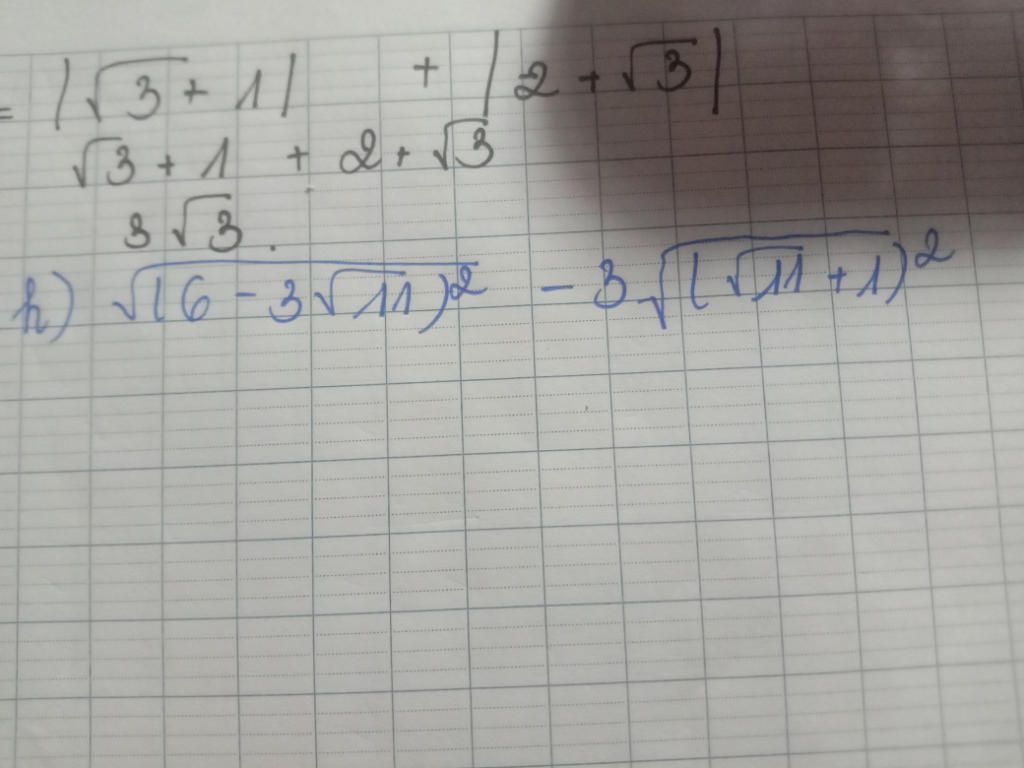 = |√3 + 1| + |2 + √3|
√3 + 1 + 2 + √3
3√3.
h) √(6 - 3√11)² - 3√(√11 + 1)²